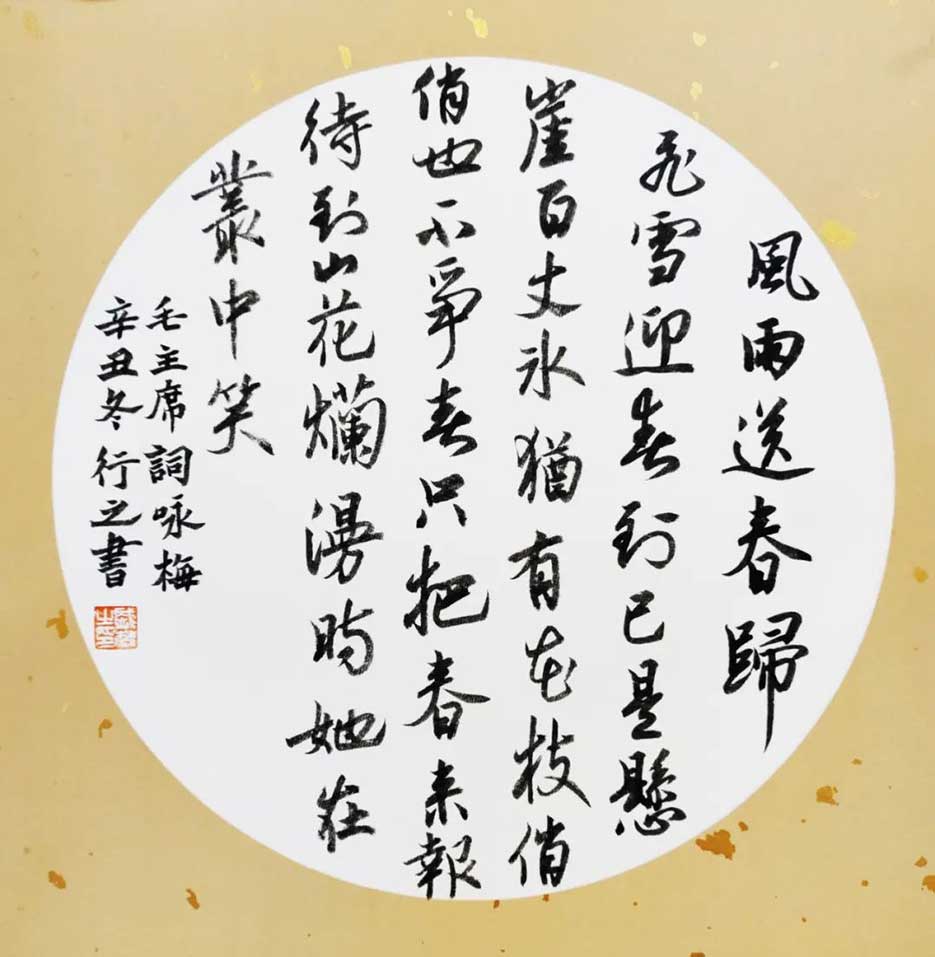 風雨送春歸
飛雪迎春到已是懸
崖百丈冰猶有花枝俏
俏也不爭春只把春來報
待到山花爛漫時她在
叢中笑
毛主席詞咏梅
辛丑冬行之書